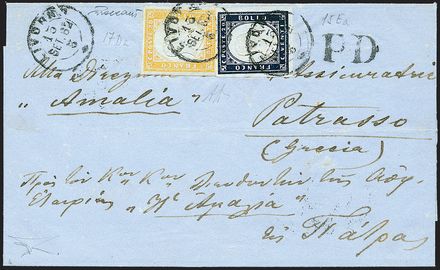 LIVORNO
15
SET
PD
15 Ea
17 Dz
FRANCO
FRANCO
Alla Direzione Assicuratrice
"Amalia"
Patrasso
(Grecia)
Πρὸς τὸν Κον Κον Διευθυντὴν τῆς Ἀσφ.
Ἑταιρίας "Ἡ Ἀμαλία"
εἰς Πάτρας